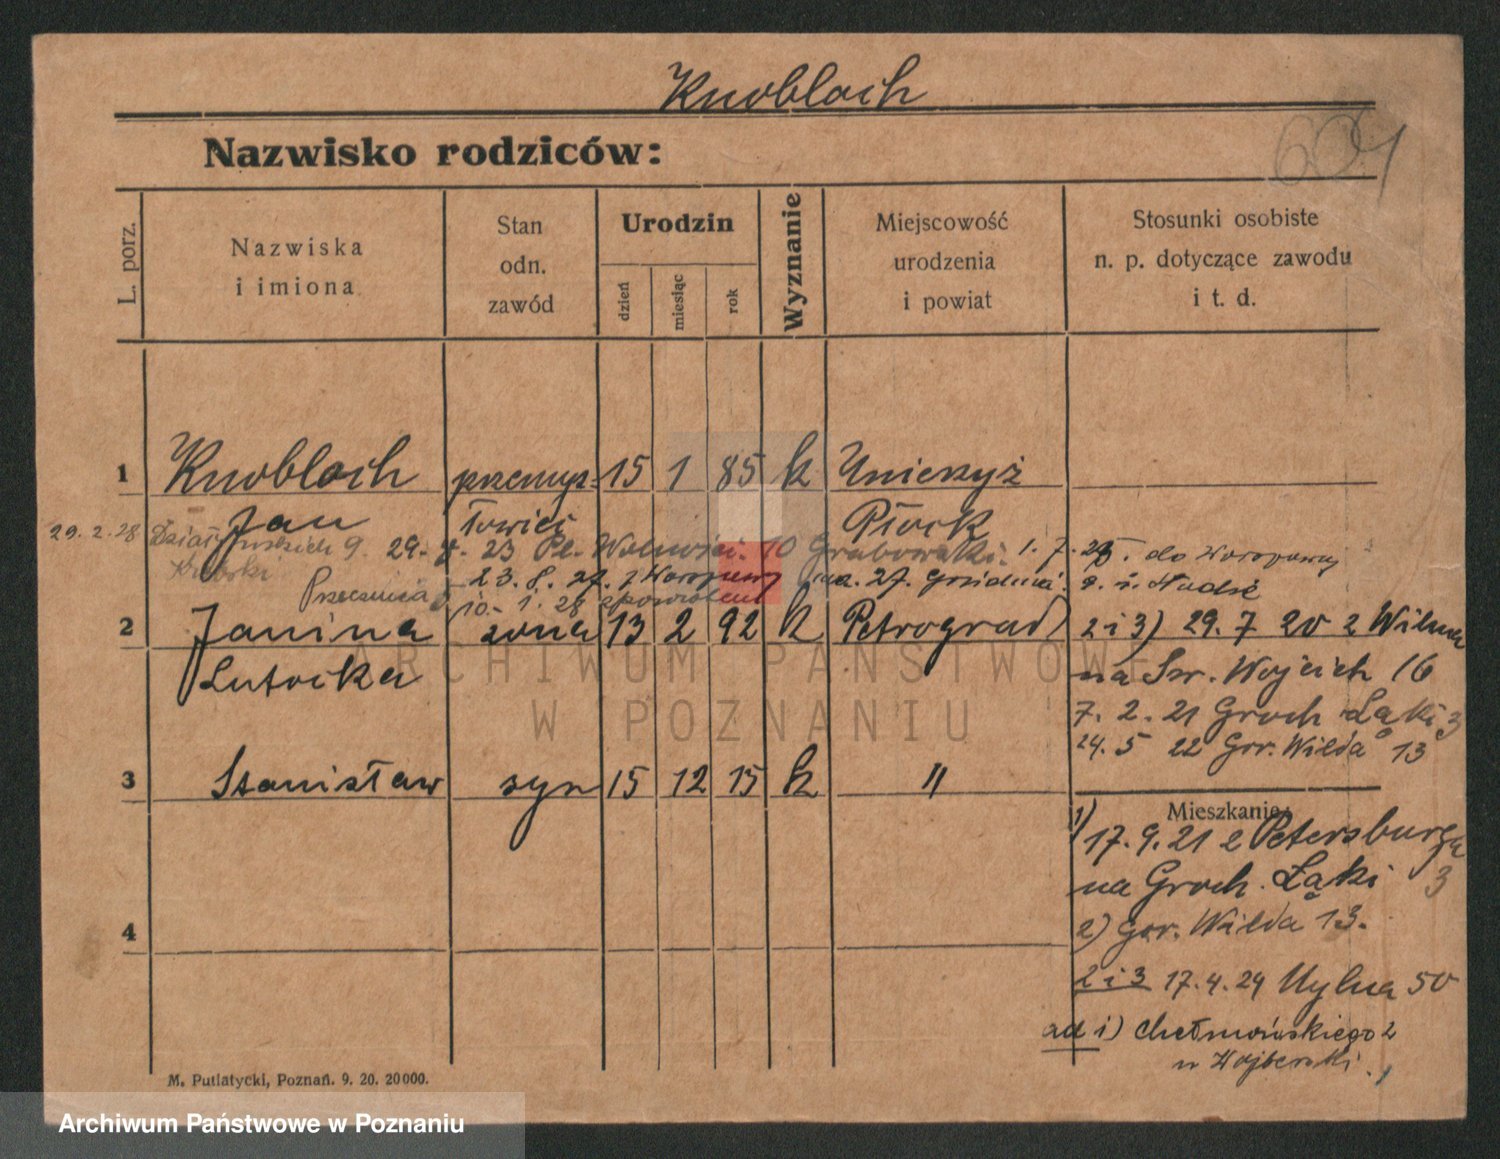 Knobloch
Nazwisko rodziców:
L. porz.
Nazwiska
i imiona
Stan
odn.
zawód
Urodzin
dzień
miesiąc
rok
Wyznanie
Miejscowość
urodzenia
i powiat
Stosunki osobiste
n. p. dotyczące zawodu
i t. d.
1 Knobloch przemys= 15 1 85 k Unierzyż
Jan łowiec Płock
29. 2. 28 9. 29. 23 Pl. Wolności 10 Grabowski. 1. 7. do Woropowy
23. 8. 27. z Woropowy na
10. 1. 28
2 Janina żona 13 2 92 k Petrograd 2 i 3) 29. 7 20 z Wilna
Lutocka na Św. Wojciech 16
7. 2. 21 Groch. Łąki 3
24. 5 22 Gór. Wilda 13
3 Stanisław syn 15 12 15 k "
Mieszkanie:
1) 17. 9. 21 z Petersburga
na Groch. Łąki 3
4
2) Gór. Wilda 13.
2 i 3 17. 4. 24 Wylna 50
ad 1) Chełmońskiego 2
M. Putiatycki, Poznań. 9. 20. 20000.
ARCHIWUM PAŃSTWOWE
W POZNANIU
Archiwum Państwowe w Poznaniu